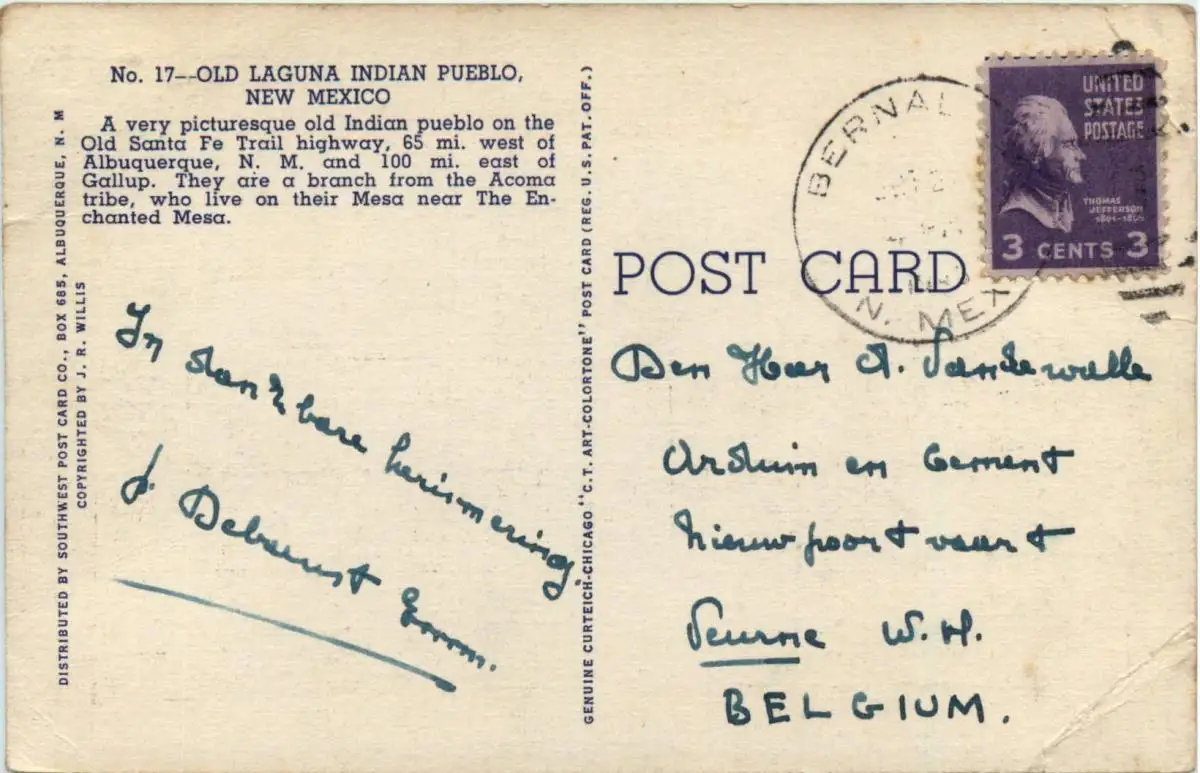 No. 17--OLD LAGUNA INDIAN PUEBLO,
NEW MEXICO
A very picturesque old Indian pueblo on the
Old Santa Fe Trail highway, 65 mi. west of
Albuquerque, N. M. and 100 mi. east of
Gallup. They are a branch from the Acoma
tribe, who live on their Mesa near The En-
chanted Mesa.
DISTRIBUTED BY SOUTHWEST POST CARD CO., BOX 685, ALBUQUERQUE, N. M
COPYRIGHTED BY J. R. WILLIS
In dankbare herinnering.
J.
GENUINE CURTEICH-CHICAGO "C.T. ART-COLORTONE" POST CARD (REG. U.S. PAT. OFF.)
POST CARD
BERNAL
N. MEX
UNITED
STATES
POSTAGE
THOMAS
JEFFERSON
3 CENTS 3
Den Heer A. Vandewalle
Arduin en Cement
Nieuwpoortvaart
Veurne W. Vl.
BELGIUM.